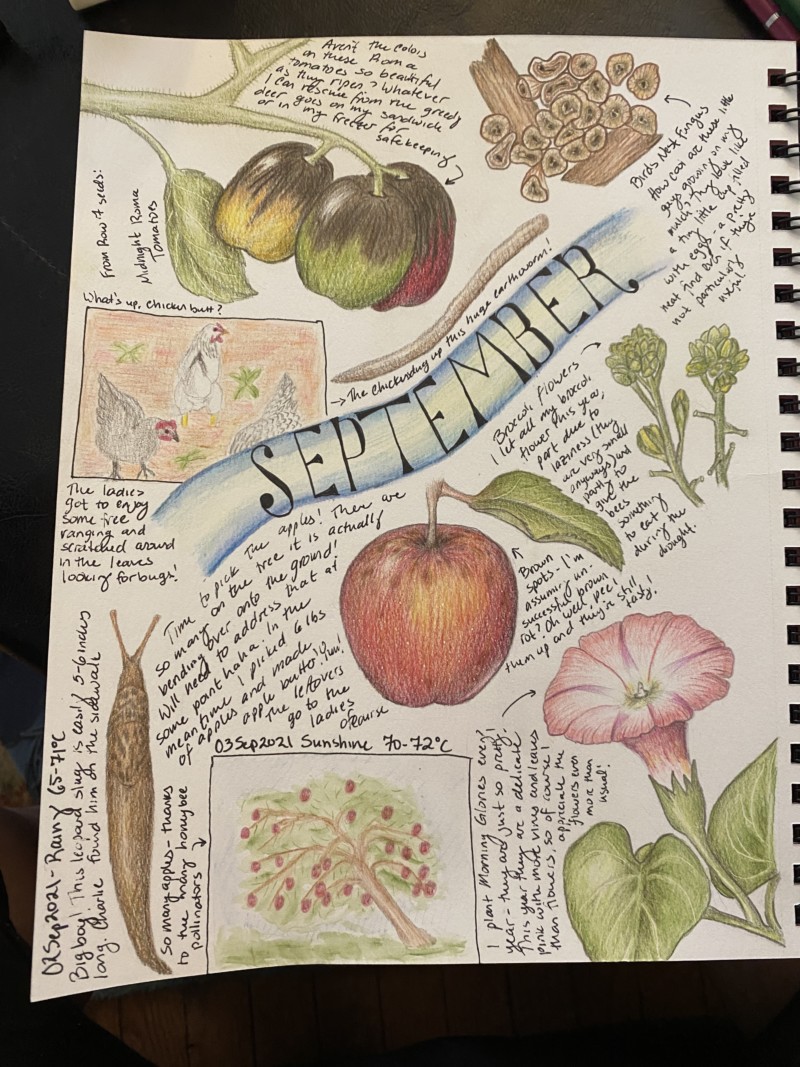 Aren't the colors
on these Roma
tomatoes so beautiful
as they ripen? Whatever
I can rescue from the greedy
deer goes on my sandwich
or in my freezer for
safekeeping
From Row 7 seeds:
Midnight Roma
Tomatoes
Birds Nest Fungus
How cool are these little
guys growing in my
mulch, they look like
a tiny little cup filled
with eggs - a pretty
neat find even if they're
not particularly
useful!
What's up, chicken butt?
→ The chickens dug up this huge earthworm!
SEPTEMBER
The ladies
got to enjoy
some free
ranging and
scratched around
in the leaves
looking for bugs!
Broccoli Flowers
I let all my broccoli
flower this year,
part due to
laziness (they
are very small
anyways) and
partly to
give the
bees
something
to eat
during the
drought.
Time to pick the apples! There are
so many on the tree it is actually
bending over onto the ground!
Will need to address that at
some point haha. In the
meantime I picked 6 lbs
of apples and made
apple butter. Yum!
The leftovers
go to the
ladies
ofcourse
Brown
spots - I'm
assuming un-
successful brown
rot? Oh well peel
them up and they're still
tasty!
02Sep2021 - Rainy 65-71°C
Big boy! This leopard slug is easily 5-6 inches
long. Charlie found him on the sidewalk
So many apples - thanks
to the many honeybee
pollinators
03Sep2021 Sunshine 70-72°C
I plant Morning Glories every
year - they are just so pretty!
This year they are a dedicated
pink with more vines and leaves
than flowers, so of course I
appreciate the
flowers even
more than
usual!